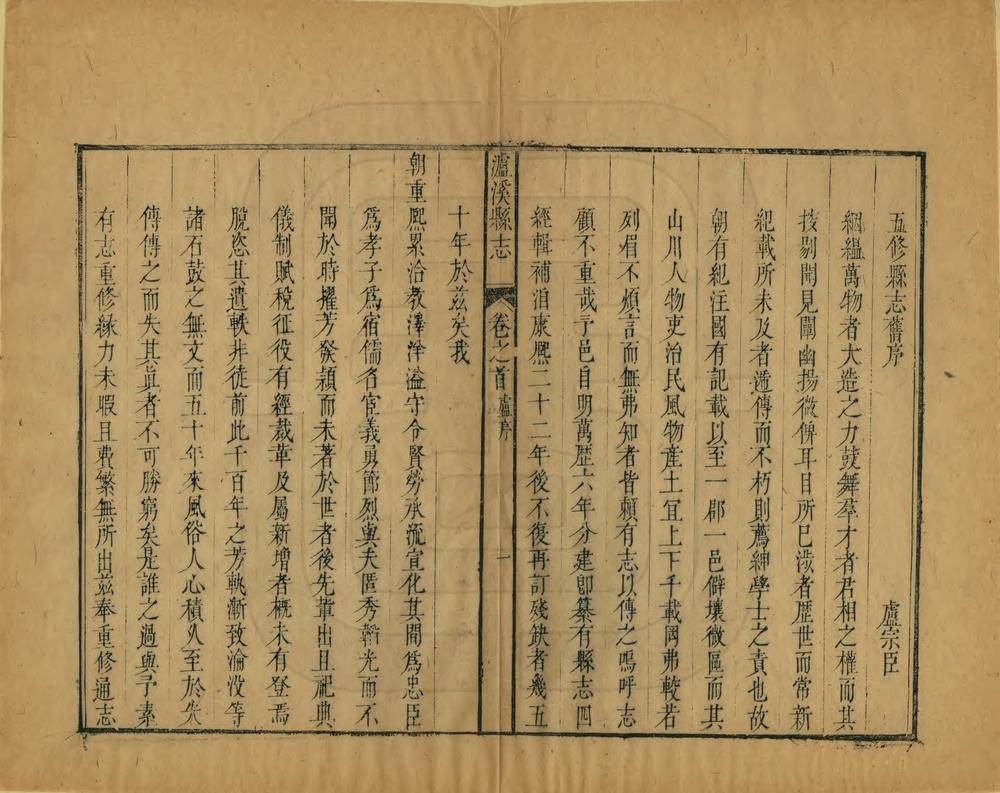 五修縣志舊序　盧宗臣
絪縕萬物者大造之力鼓舞羣才者君相之權而其
技剔聞見闡幽揚微俾耳目所已涉者歷世而常新
紀載所未及者遞傳而不朽則薦紳學士之責也故
朝有紀注國有記載以至一郡一邑僻壤微區而其
山川人物吏治民風物産土宜上下千載罔弗較若
列眉不煩言而無弗知者皆頼有志以傳之嗚呼志
顧不重哉予邑自明萬歷六年分建卽纂有縣志四
經輯補洎康熙二十二年後不復再訂殘缺者幾五
瀘溪縣志　卷之首　盧序　一
十年於兹矣我
朝重熙累洽教澤洋溢守令賢勞承流宣化其間爲忠臣
爲孝子爲宿儒名宦義勇節烈與夫匿秀韜光而不
聞於時擢芳發頴而未著於世者後先輩出且祀典
儀制賦稅征役有經裁革及屬新增者槪未有登焉
脫恣其遺軼非徒前此千百年之芳軌漸致淪没等
諸石鼓之無文而五十年來風俗人心積久至於失
傳傳之而失其眞者不可勝窮矣是誰之過與予素
有志重修緣力未暇且費繁無所出兹奉重修通志